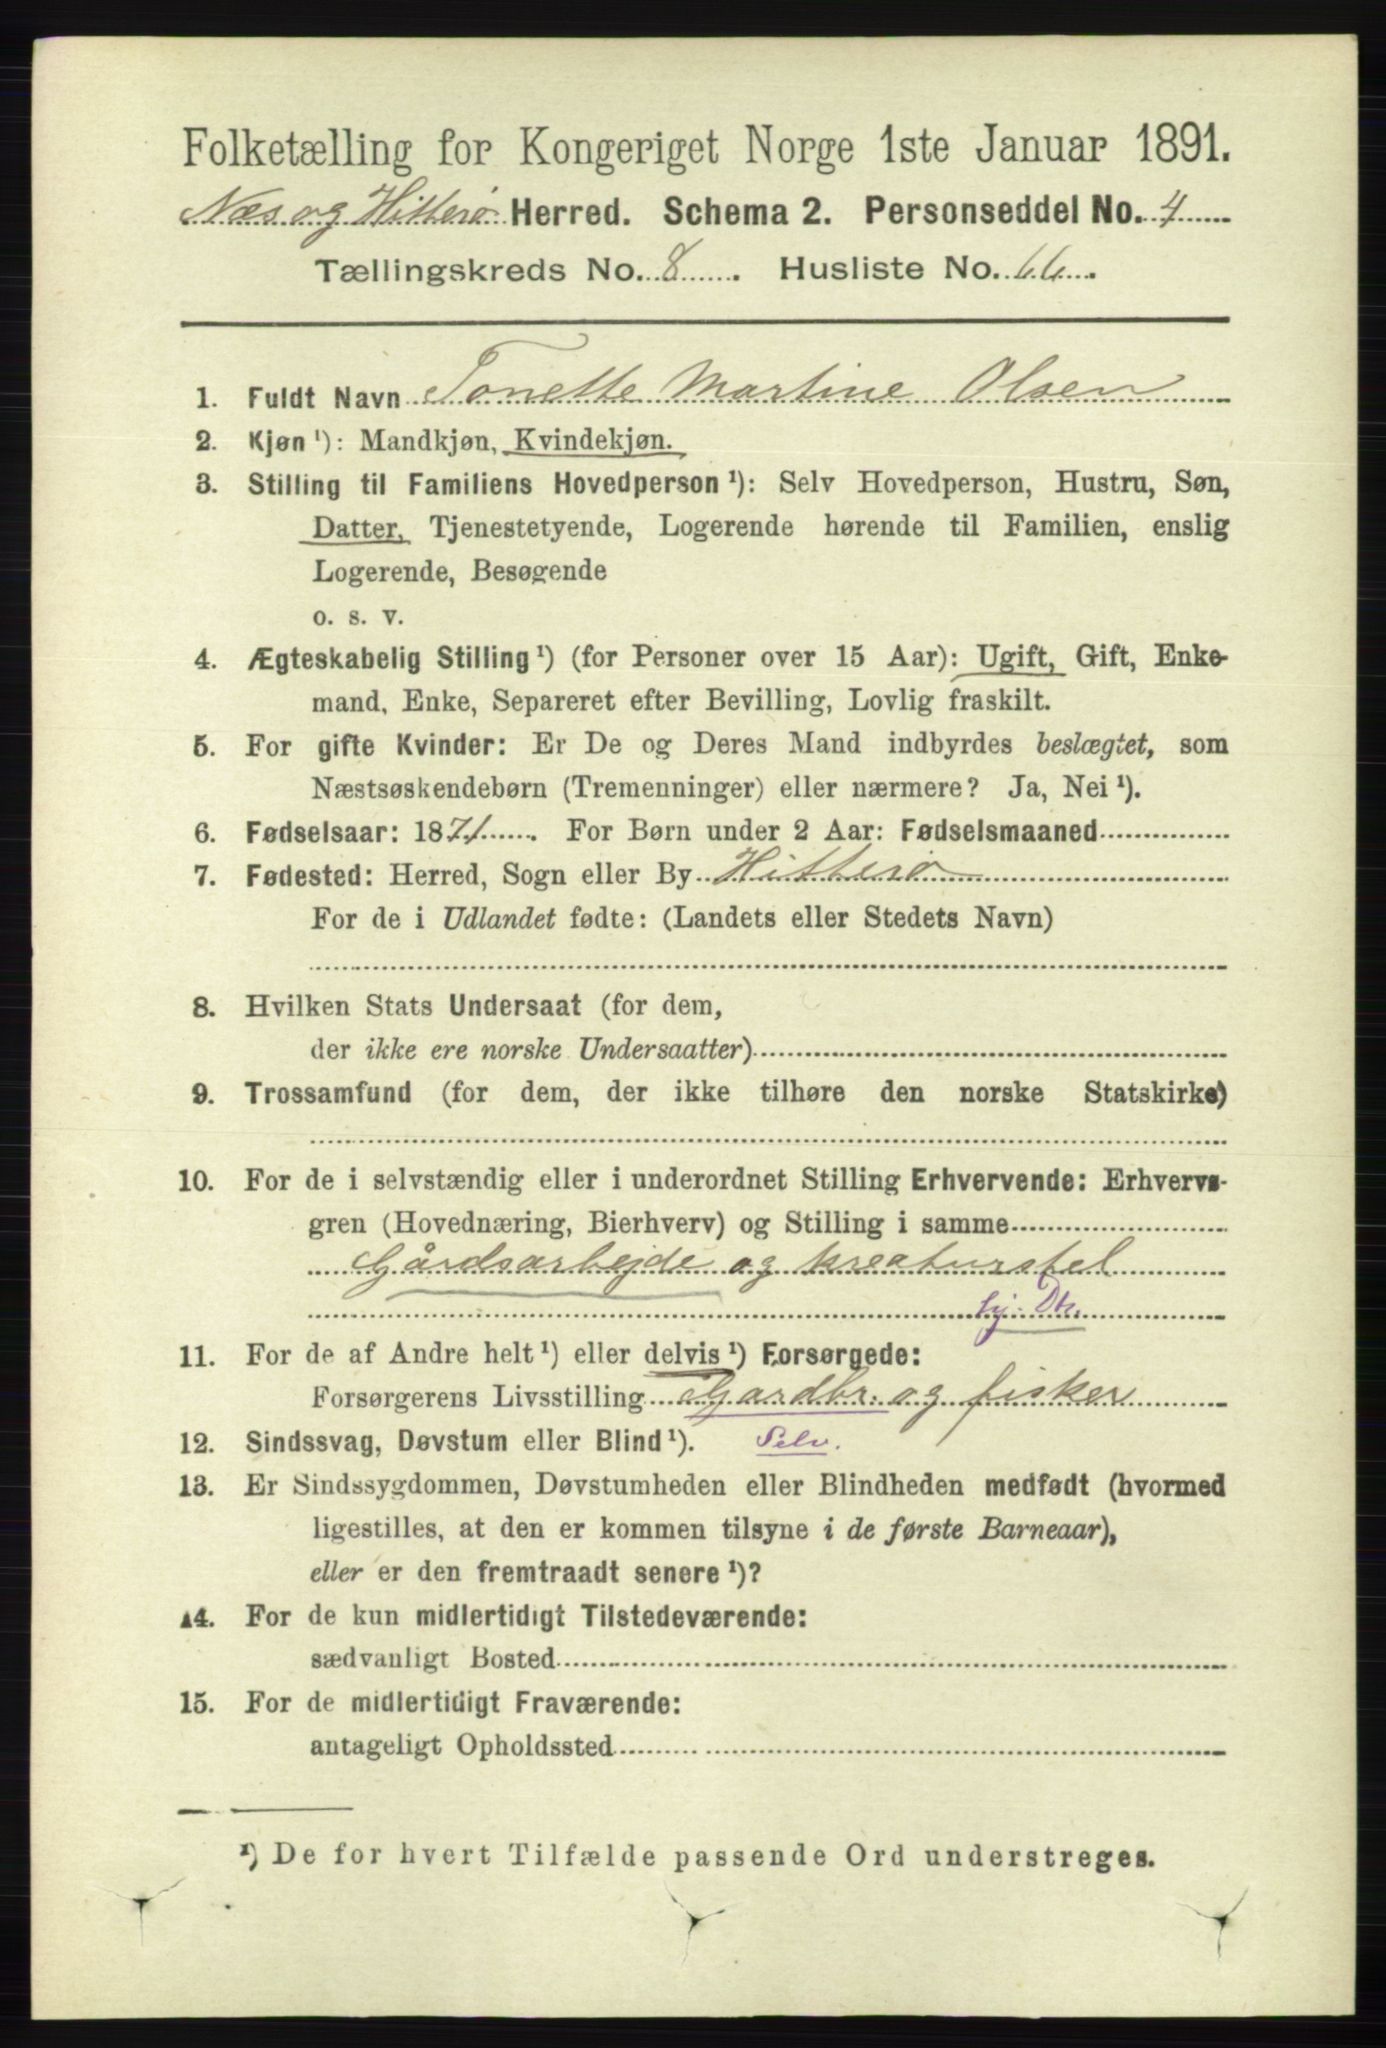 Folketælling for Kongeriget Norge 1ste Januar 1891.
Næs og Hitterø Herred. Schema 2. Personseddel No. 4
Tællingskreds No. 8. Husliste No. 66.
1. Fuldt Navn Tonette Martine Olsen
2. Kjøn ¹): Mandkjøn, Kvindekjøn.
3. Stilling til Familiens Hovedperson ¹): Selv Hovedperson, Hustru, Søn,
Datter, Tjenestetyende, Logerende hørende til Familien, enslig
Logerende, Besøgende
o. s. v.
4. Ægteskabelig Stilling ¹) (for Personer over 15 Aar): Ugift, Gift, Enke-
mand, Enke, Separeret efter Bevilling, Lovlig fraskilt.
5. For gifte Kvinder: Er De og Deres Mand indbyrdes beslægtet, som
Næstsøskendebørn (Tremenninger) eller nærmere? Ja, Nei ¹).
6. Fødselsaar: 1871. For Børn under 2 Aar: Fødselsmaaned
7. Fødested: Herred, Sogn eller By Hitterø
For de i Udlandet fødte: (Landets eller Stedets Navn)
8. Hvilken Stats Undersaat (for dem,
der ikke ere norske Undersaatter)
9. Trossamfund (for dem, der ikke tilhøre den norske Statskirke)
10. For de i selvstændig eller i underordnet Stilling Erhvervende: Erhvervs-
gren (Hovednæring, Bierhverv) og Stilling i samme
Gårdsarbejde og kreaturstel
tj. Dtr.
11. For de af Andre helt ¹) eller delvis ¹) Forsørgede:
Forsørgerens Livsstilling Gardbr. og fisker
12. Sindssvag, Døvstum eller Blind ¹). Selv.
13. Er Sindssygdommen, Døvstumheden eller Blindheden medfødt (hvormed
ligestilles, at den er kommen tilsyne i de første Barneaar),
eller er den fremtraadt senere ¹)?
14. For de kun midlertidigt Tilstedeværende:
sædvanligt Bosted
15. For de midlertidigt Fraværende:
antageligt Opholdssted
¹) De for hvert Tilfælde passende Ord understreges.